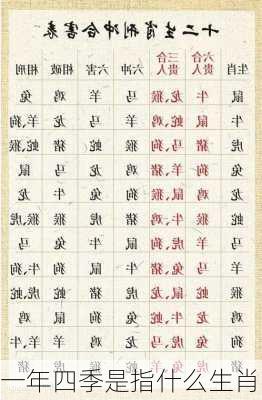 十二生肖刑冲合害表
生肖 六合贵人 三合贵人 六冲 六害 相破 相刑
鼠 牛 龙,猴 马 羊 鸡 兔
牛 鼠 蛇,鸡 羊 马 龙 羊,狗
虎 猪 马,狗 猴 蛇 猪 蛇,猴
兔 狗 羊,猪 鸡 龙 马 鼠
龙 鸡 鼠,猴 狗 兔 牛 龙
蛇 猴 牛,鸡 猪 虎 猴 虎,猴
马 羊 虎,狗 鼠 牛 兔 马
羊 马 兔,猪 牛 鼠 狗 牛,狗
猴 蛇 鼠,龙 虎 猪 蛇 虎,蛇
一年四季是指什么生肖